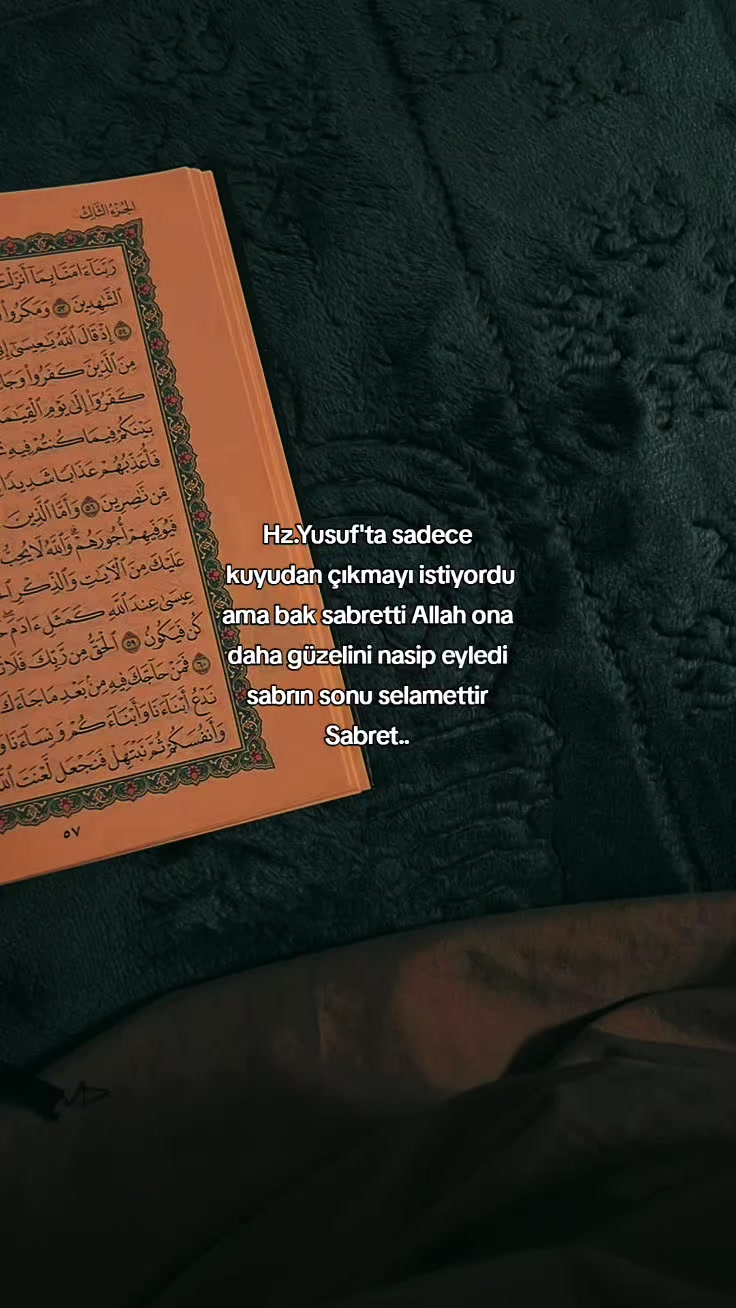 الجزء الثالث
ربنا ءامنا بما أنزلت
الشهدين ٥٣ ومكروا
٥٤ إذ قال الله يعيسى
من الذين كفروا
كفروا إلى يوم القيمة
بينكم فيما كنتم فيه
فأعذبهم عذابا شديدا
من نصرين ٥٦ وأما الذين
فيوفيهم أجورهم والله لا يحب
عليك من الأيت والذكر
عيسى عند الله كمثل ءادم
كن فيكون ٥٩ الحق من ربك فلا
٦٠ فمن حاجك فيه من بعد ما جاءك
ندع أبناءنا وأبناءكم ونساءنا
وأنفسكم ثم نبتهل فنجعل لعنت
٥٧
Hz.Yusuf'ta sadece
kuyudan çıkmayı istiyordu
ama bak sabretti Allah ona
daha güzelini nasip eyledi
sabrın sonu selamettir
Sabret..